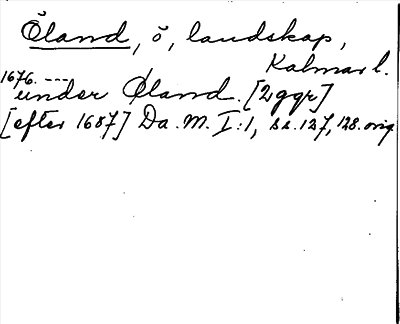 Öland, ö, landskap,
Kalmar l.
1676. ---
under Øland. [2 ggr]
[efter 1687] Da. M. I:1, ss. 127, 128. orig.